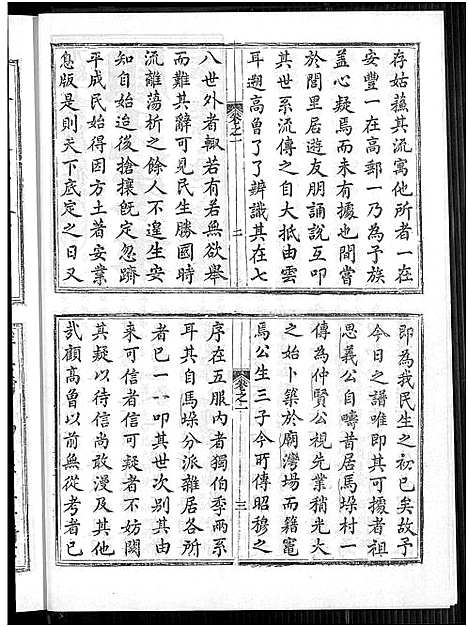 存姑蘓其流寓他所者一在
安豐一在高郵一乃為予族
盖心疑焉而未有據也間嘗
於閭里居遊友朋誦說互叩
其世系流傳之自大抵由雲
耳遡高曾了了辨識其在七
卷之一
二
八世外者輙若有若無欲舉
而難其辭可見民生勝國時
流離蕩析之餘人不遑生安
知自始迨後搶攘旣定忽躋
平成民始得因方土著安業
息版是則天下底定之日又
即為我民生之初已矣故予
今日之譜唯即其可據者祖
思義公自疇昔居馬垛村一
傳為仲賢公視先業稍光大
之始卜築於廟灣場而籍竈
焉公生三子今所傳昭穆之
卷之一
三
序在五服內者獨伯季兩系
耳其自馬垛分派雜居各所
者已一一叩其世次別其由
來可信者信可疑者不妨闕
其疑以待信尚敢漫及其他
㢤顧高曾以前無從考者已